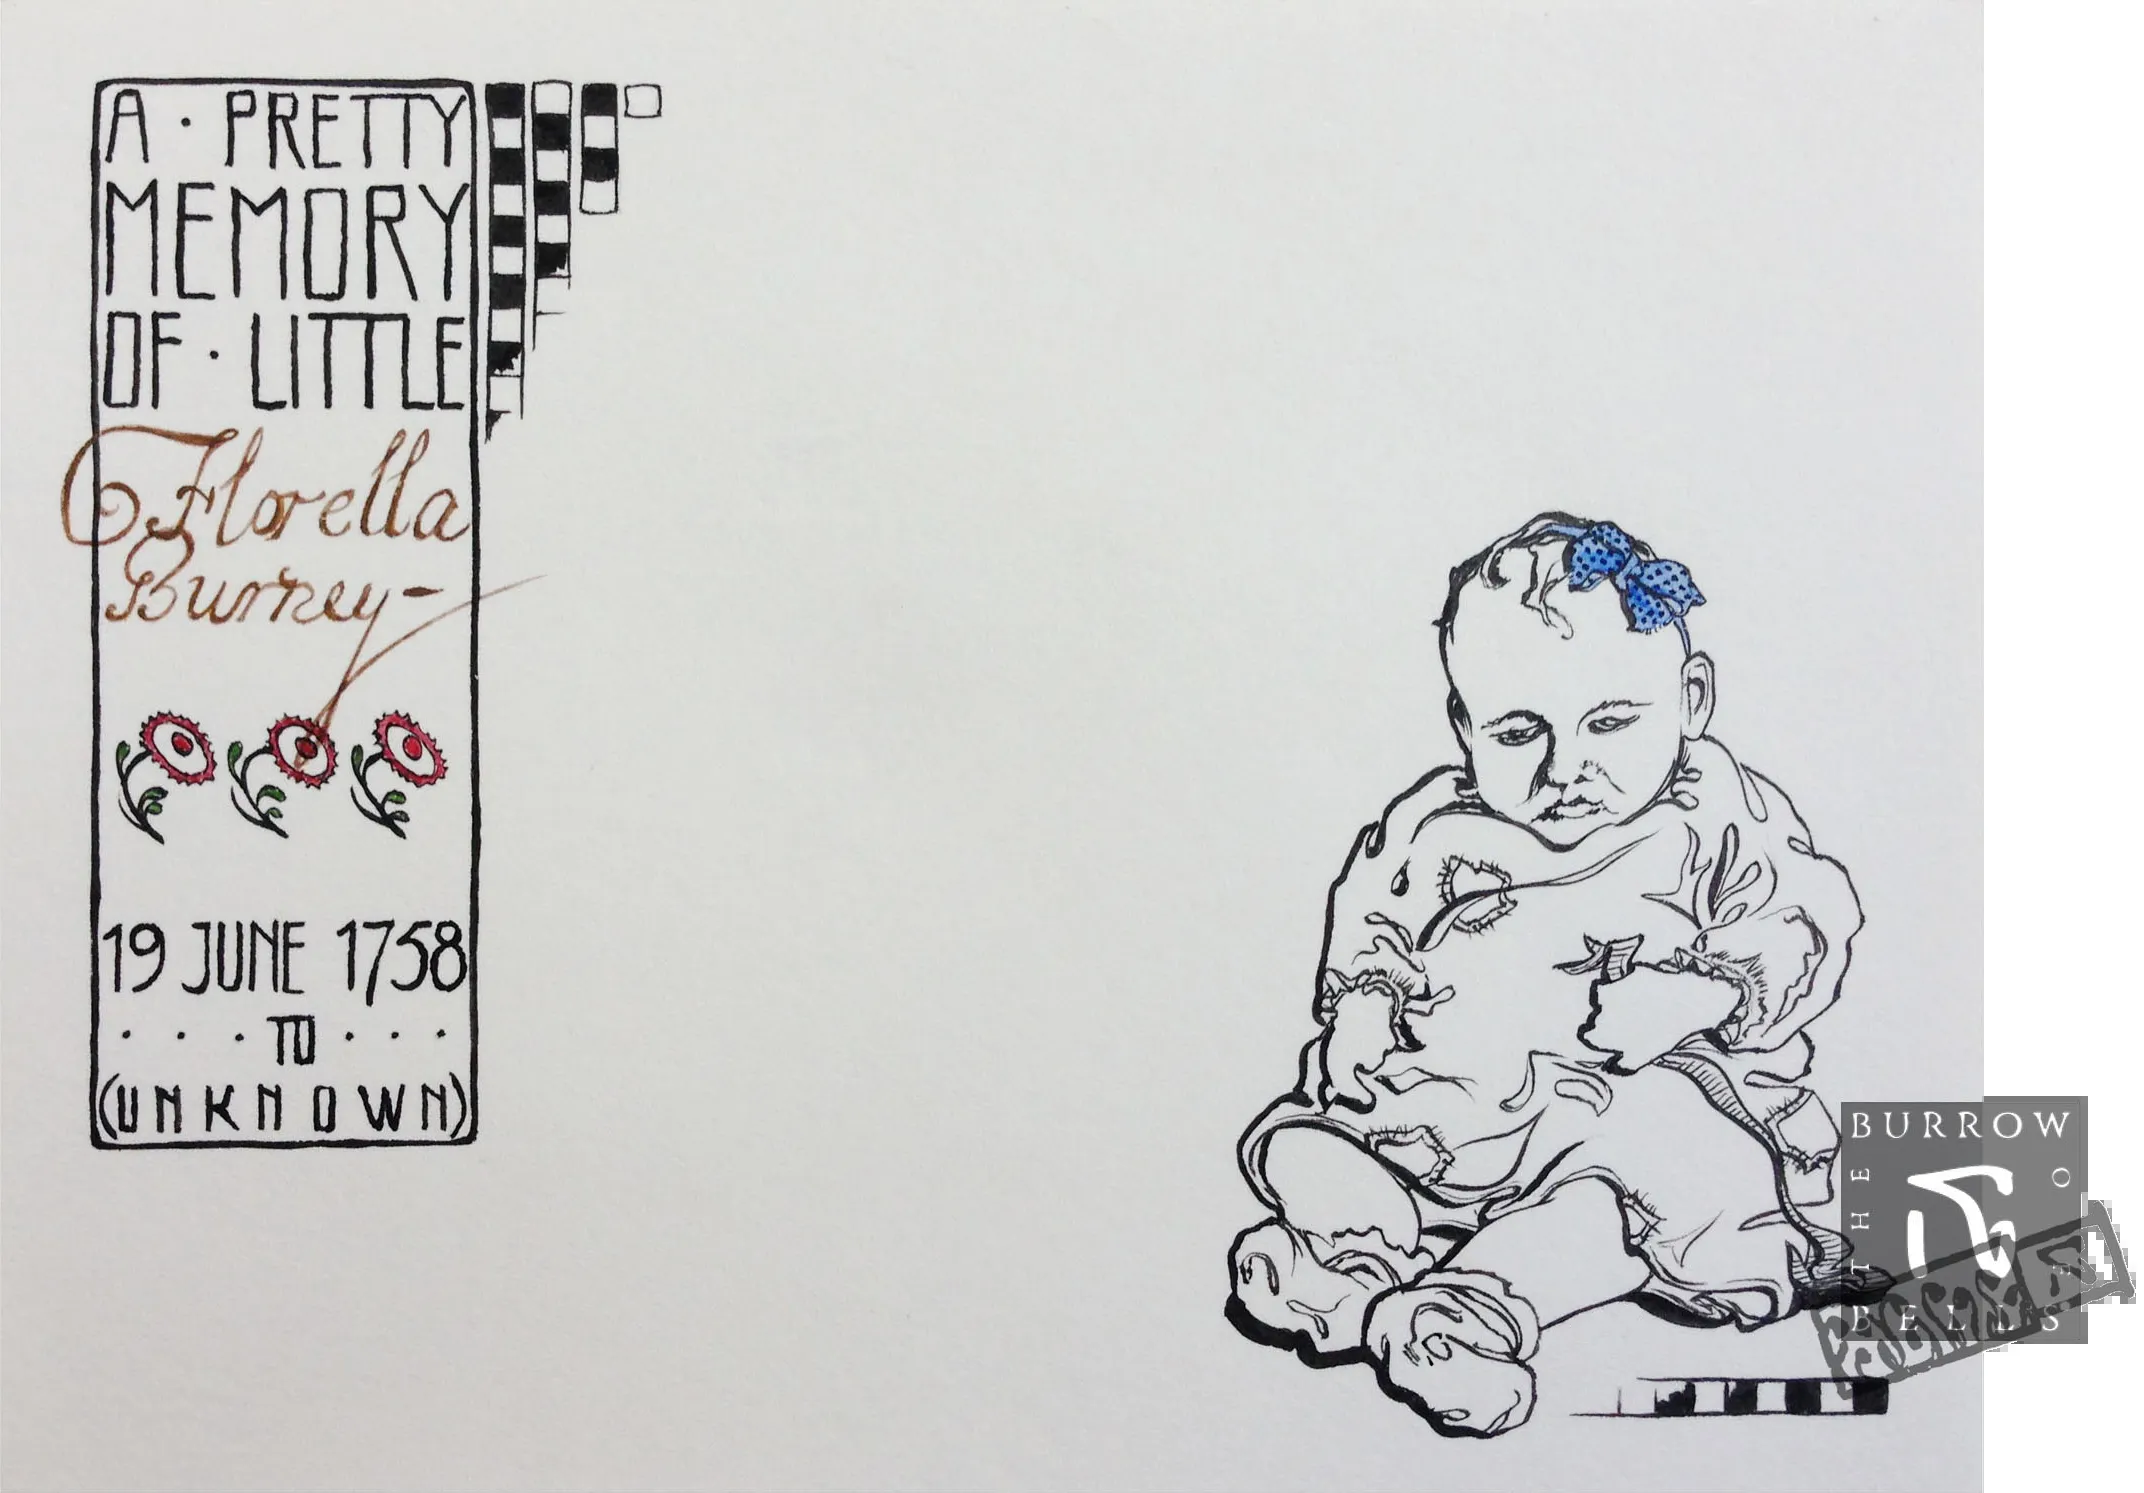 A · PRETTY
MEMORY
OF · LITTLE
Florella
Burney-
19 JUNE 1758
· · · TO · · ·
(UNKNOWN)
BURROW
THE
OF
BELLS